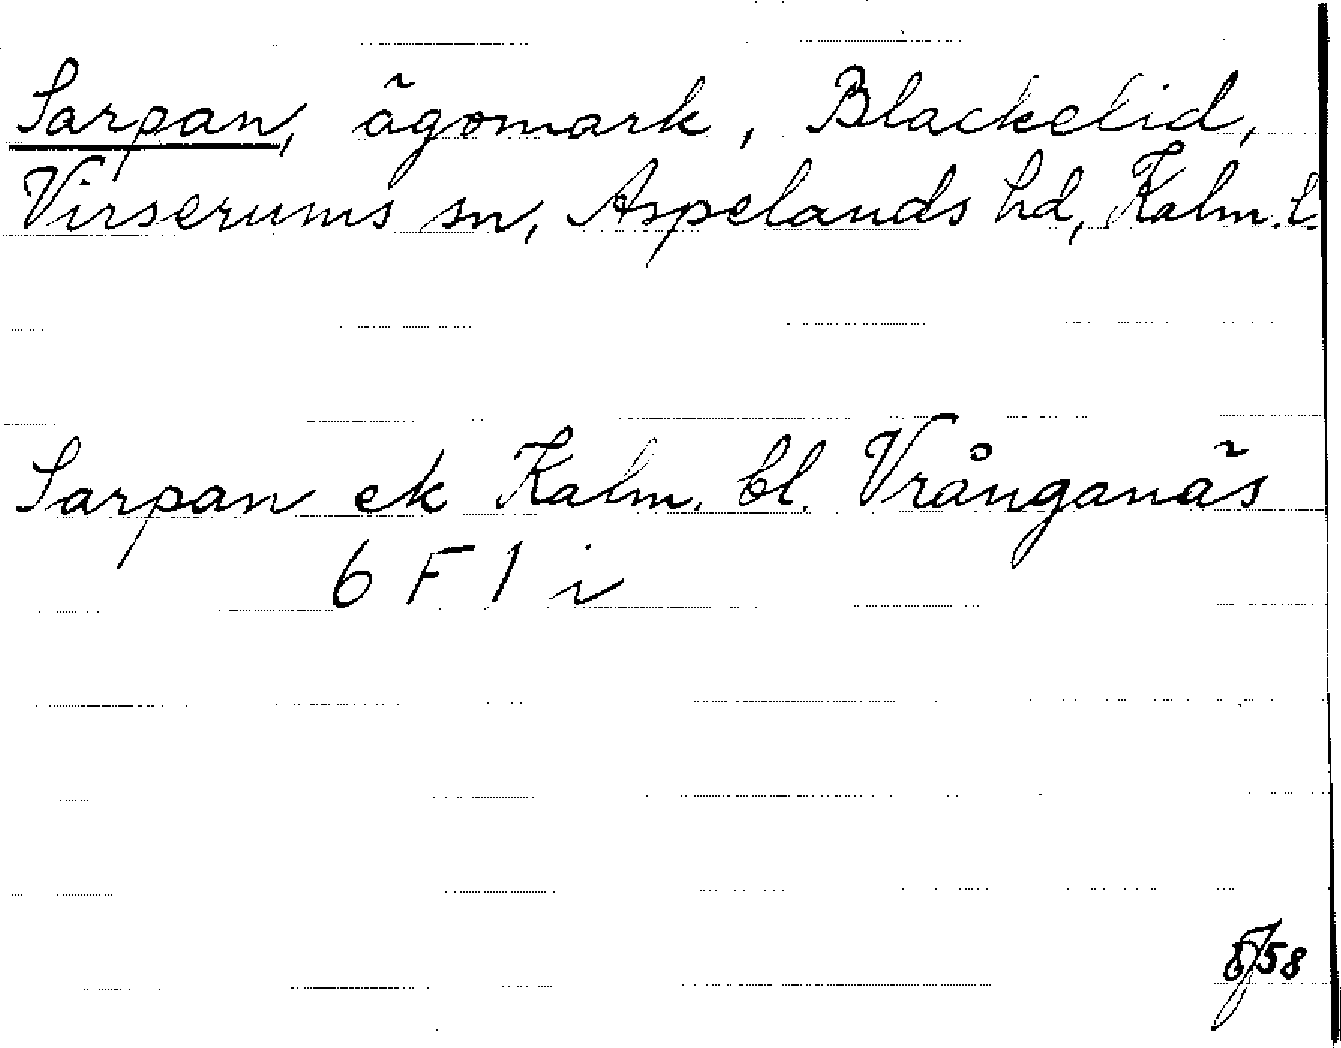 Sarpan, ägomark, Blackelid,
Virserums sn, Aspelands hd, Kalm. l.
Sarpan ek Kalm. bl. Vrånganäs
6 F 1 i